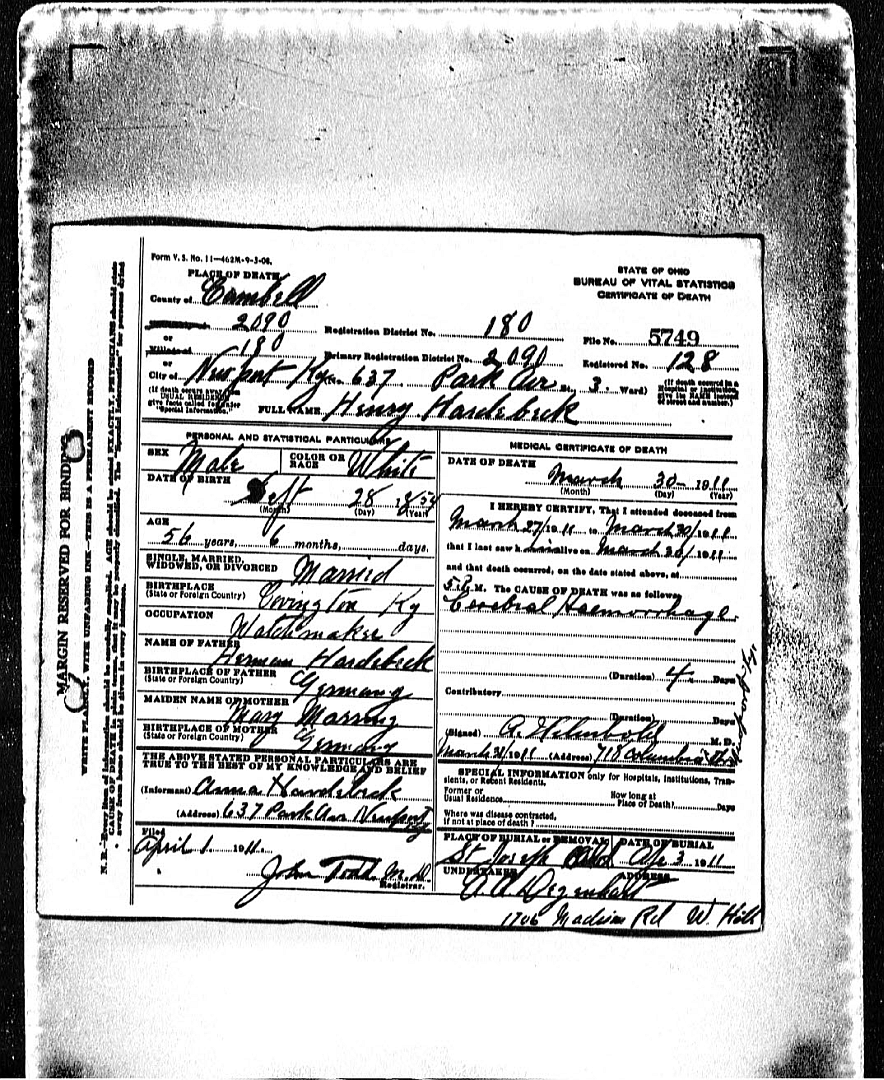 Form V. S. No. 11—462M-9-3-08.
PLACE OF DEATH
STATE OF OHIO
BUREAU OF VITAL STATISTICS
CERTIFICATE OF DEATH
County of Cambell
2090
Registration District No. 180
File No. 5749
or
Village of 180
Primary Registration District No. 2090
Registered No. 128
or
City of Newport Ky No. 637 Park Ave St. 3. Ward)
(If death occurred in a
Hospital or institution,
give its NAME instead
of street and number.)
(If death occurs away from
USUAL RESIDENCE
give facts called for under
"Special Information.")
FULL NAME Henry Hardebeck
PERSONAL AND STATISTICAL PARTICULARS
SEX Male
COLOR OR RACE White
DATE OF BIRTH
Sept 28 1854
(Month) (Day) (Year)
AGE
56 years, 6 months, days.
SINGLE, MARRIED,
WIDOWED, OR DIVORCED Married
BIRTHPLACE
(State or Foreign Country) Covington Ky
OCCUPATION
Watchmaker
NAME OF FATHER
Herman Hardebeck
BIRTHPLACE OF FATHER
(State or Foreign Country) Germany
MAIDEN NAME OF MOTHER
Mary
BIRTHPLACE OF MOTHER
(State or Foreign Country) Germany
THE ABOVE STATED PERSONAL PARTICULARS ARE
TRUE TO THE BEST OF MY KNOWLEDGE AND BELIEF
(Informant) Anna Hardebeck
(Address) 637 Park Ave Newport Ky
Filed
April 1 1911
John Todd M.D.
Registrar.
MEDICAL CERTIFICATE OF DEATH
DATE OF DEATH
March 30 1911
(Month) (Day) (Year)
I HEREBY CERTIFY, That I attended deceased from
March 27/1911 to March 30/1911
that I last saw him alive on March 30/1911
and that death occurred, on the date stated above, at
5 P. M. The CAUSE OF DEATH was as follows
Cerebral Haemorrhage.
(Duration) 4 Days
Contributory
(Duration) Days
(Signed) A. Helmbold M. D.
March 31/1911 (Address) 718 Columbia St
Newport Ky.
SPECIAL INFORMATION only for Hospitals, Institutions, Transients, or Recent Residents.
Former or
Usual Residence
How long at
Place of Death? Days
Where was disease contracted,
If not at place of death?
PLACE OF BURIAL or REMOVAL
St Joseph
DATE OF BURIAL
Apr 3 1911
UNDERTAKER
ADDRESS
1706 Madison Rd W. Hills
MARGIN RESERVED FOR BINDING
WRITE PLAINLY, WITH UNFADING INK—THIS IS A PERMANENT RECORD